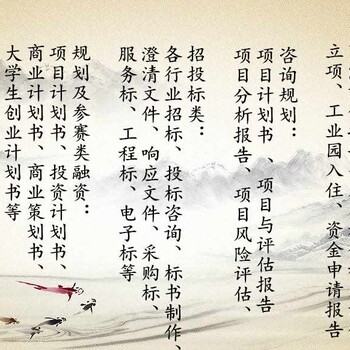 立项、工业园入住、资金申请报告
咨询规划：
项目计划书、项目与评估报告
项目分析报告、项目风险评估、
招投标类：
各行业招标、投标咨询、标书制作、
澄清文件、响应文件、采购标、
服务标、工程标、电子标等
规划及参赛类融资：
项目计划书、投资计划书、
商业计划书、商业策划书、
大学生创业计划书等